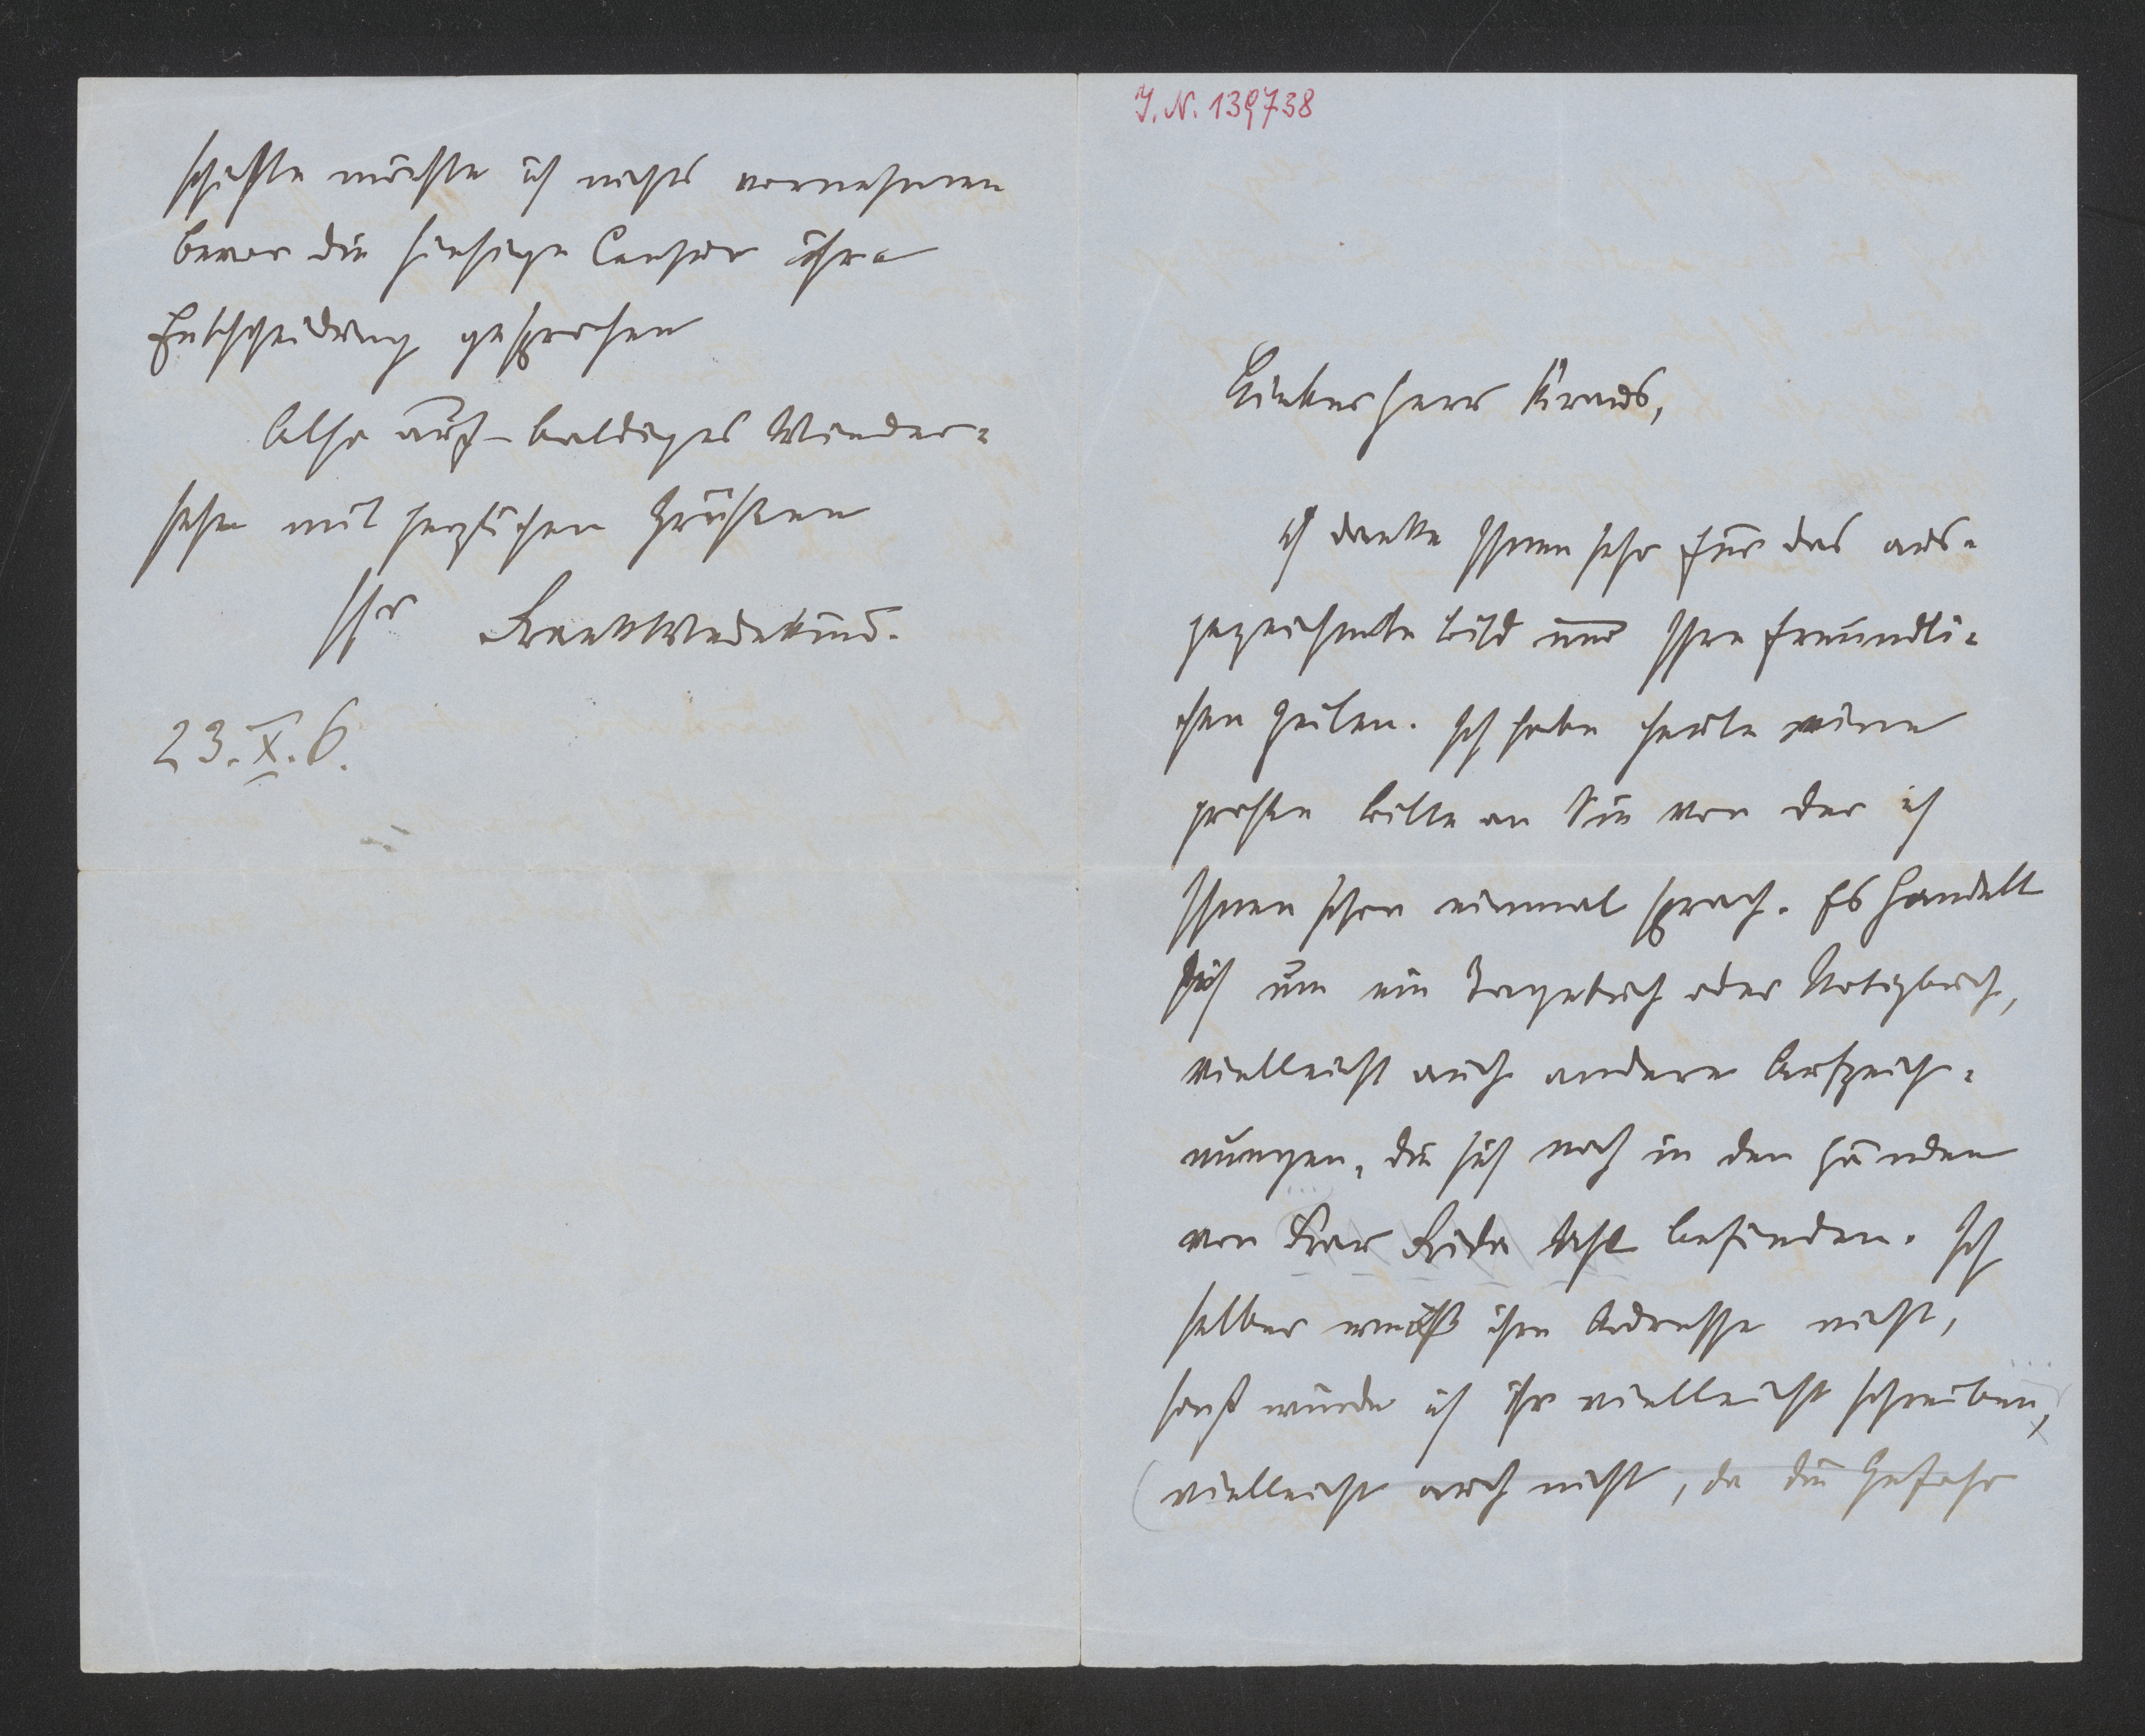 J. N. 139738
Lieber Herr Kraus,
ich danke Ihnen sehr für das aus-
gezeichnete Bild und Ihre freundli-
chen Zeilen. Ich habe heute eine
große Bitte an Sie von der ich
Ihnen schon einmal sprach. Es handelt
sich um ein Tagebuch oder Notizbuch,
vielleicht auch andere Aufzeich-
nungen, die sich noch in den Händen
von Frau Frida Uhl befinden. Ich
selber weiß ihre Adresse nicht,
sonst würde ich ihr vielleicht schreiben,
(vielleicht auch nicht, da die Gefahr
schichte möchte ich nichts vornehmen
bevor die hiesige Censur ihre
Entscheidung gesprochen
Also auf baldiges Wieder-
sehn mit herzlichen Grüßen
Ihr Frank Wedekind.
23.X.6.